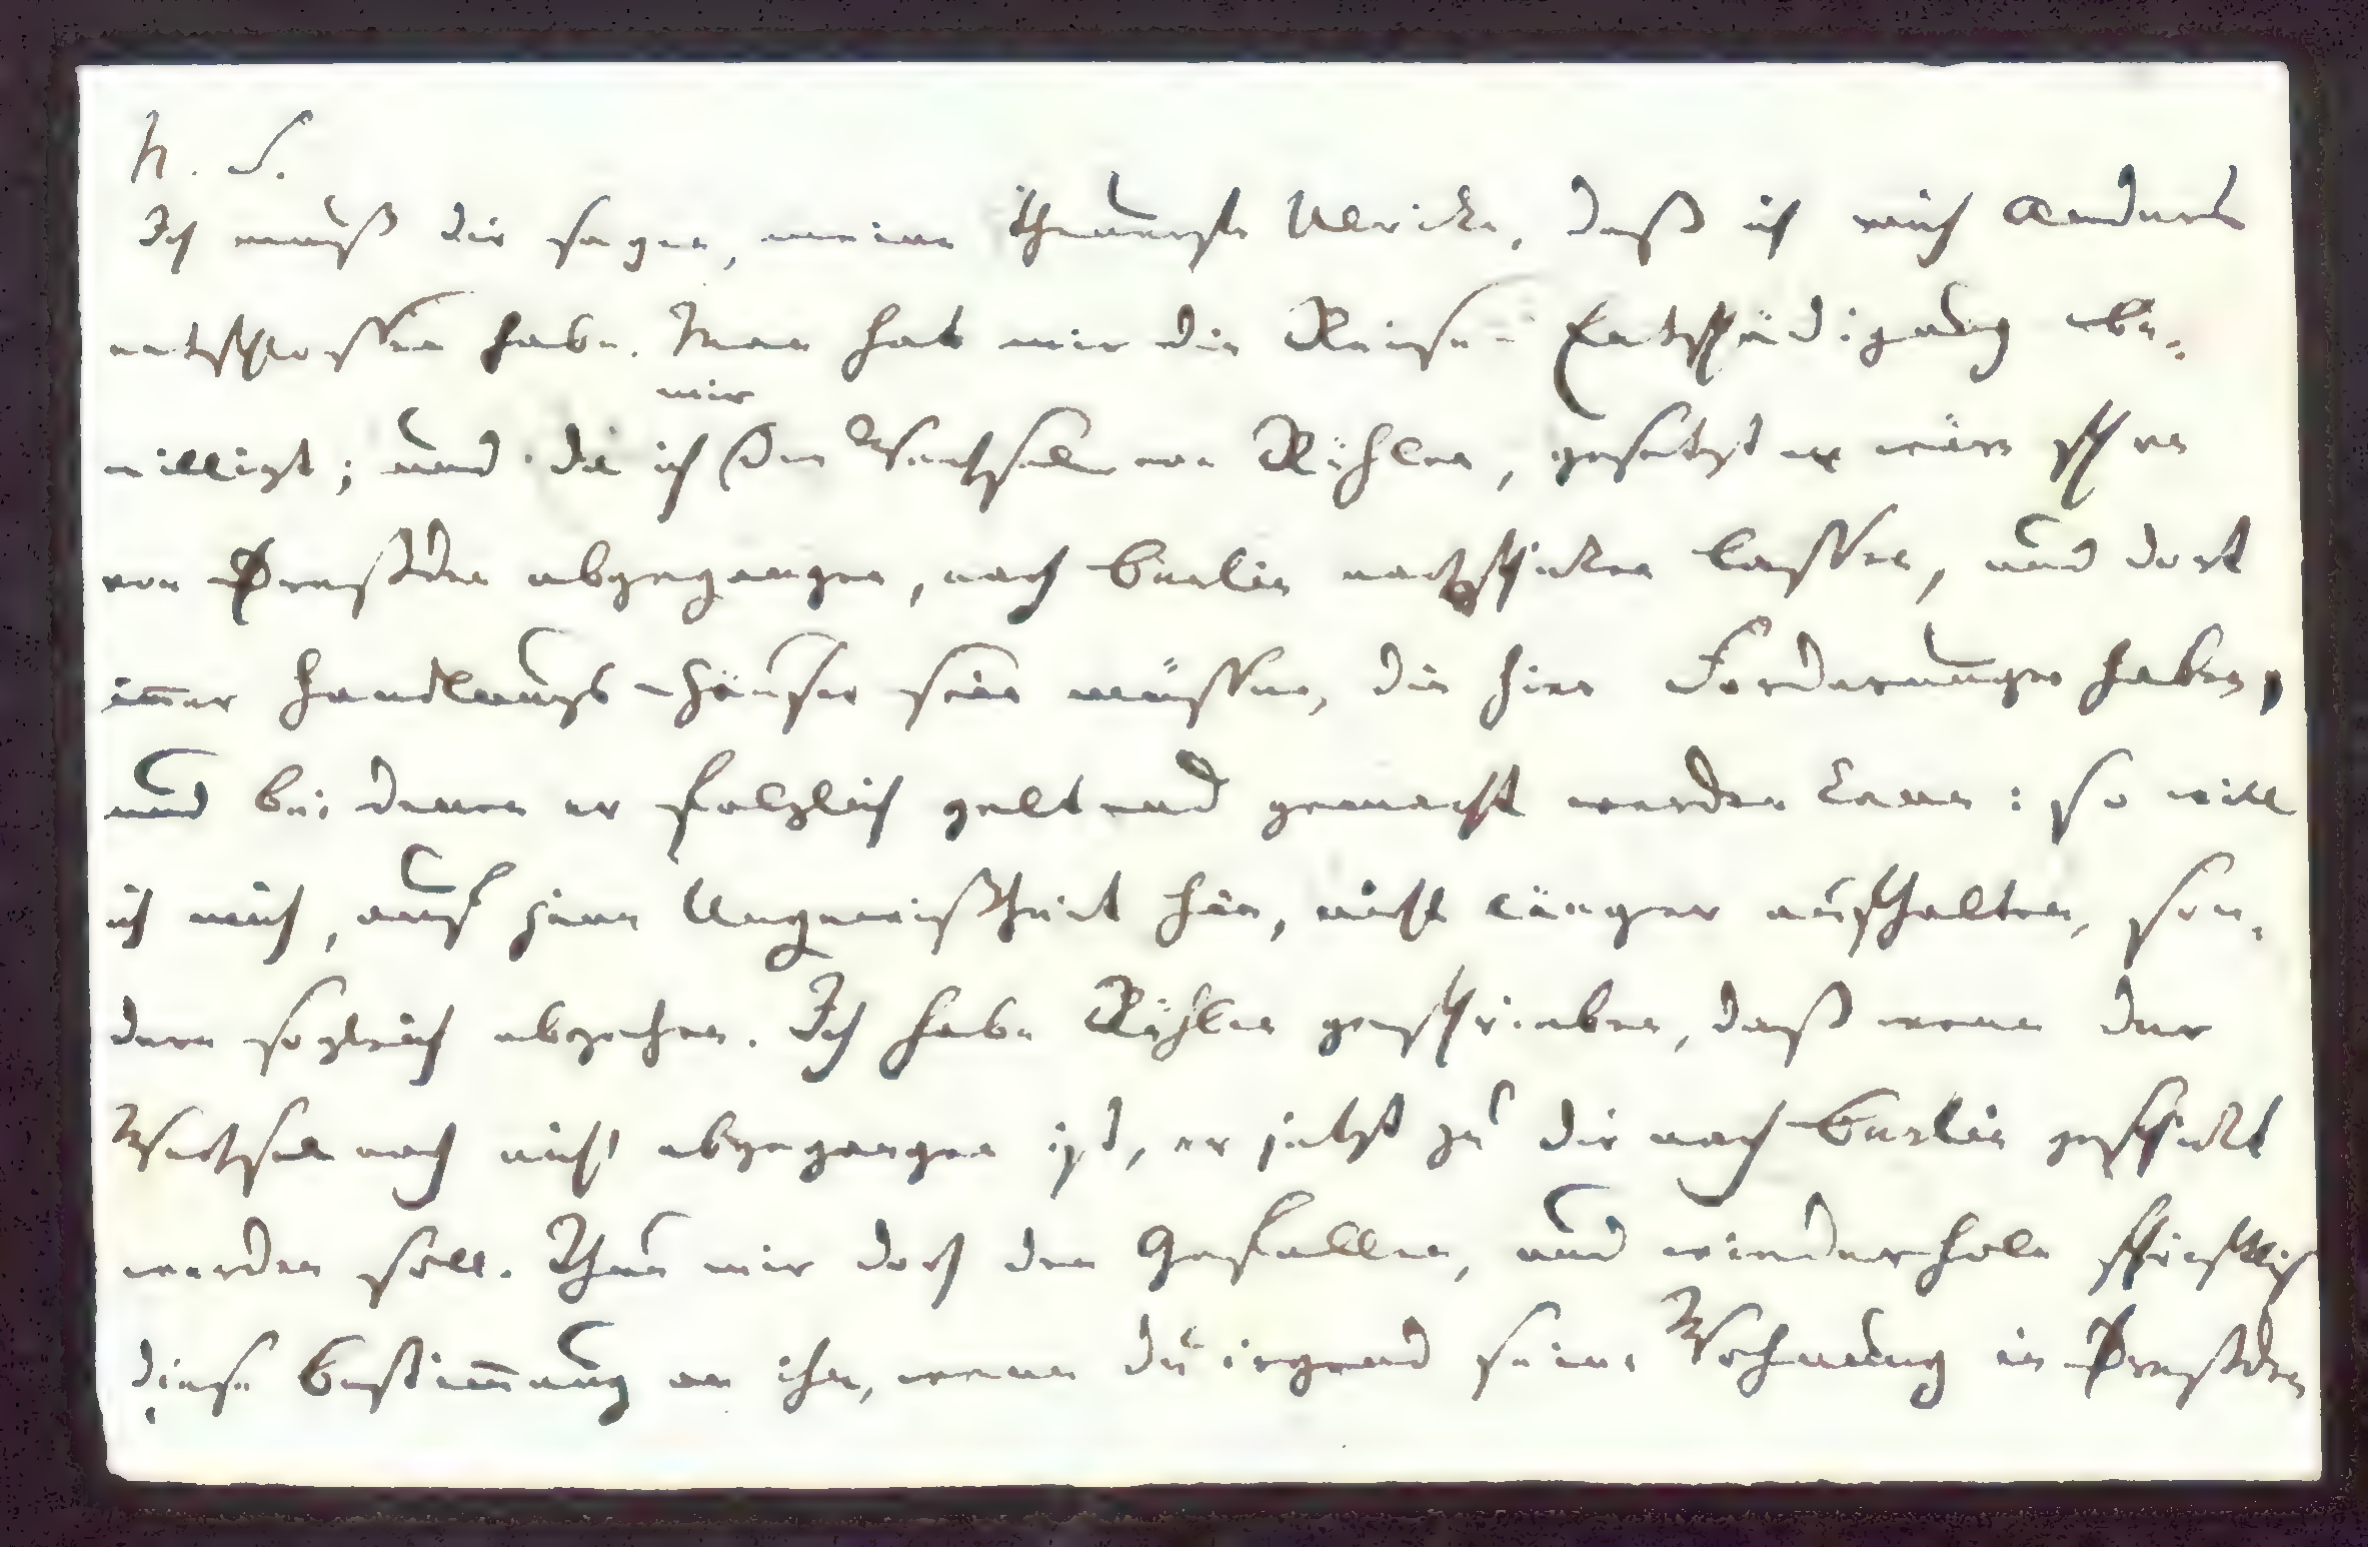 N. S.
Ich muß dir sagen, meine theuerste Ulricke, daß ich mich anders
entschlossen habe. Man hat mir die Reise-Entschädigung be-
mir
willigt; und da ich den Wechsel von Rühlen, gesetzt er wäre schon
von Dreßden abgegangen, nach Berlin nachschicken lassen, und dort
im̅er Handlungs-Häuser sein müssen, die hier Forderungen haben,
und bei denen er folglich geltend gemacht werden kann: so will
ich mich, auf jene Ungewißheit hin, nicht länger aufhalten, son-
dern sogleich abgehen. Ich habe Rühlen geschrieben, daß wenn der
Wechsel noch nicht abgegangen ist, er jetzt zu dir nach Berlin geschickt
werden soll. Thue mir doch den Gefallen, und wiederhole schriftlich
diese Bestim̅ung an ihn, wenn du irgend seine Wohnung in Dreßden